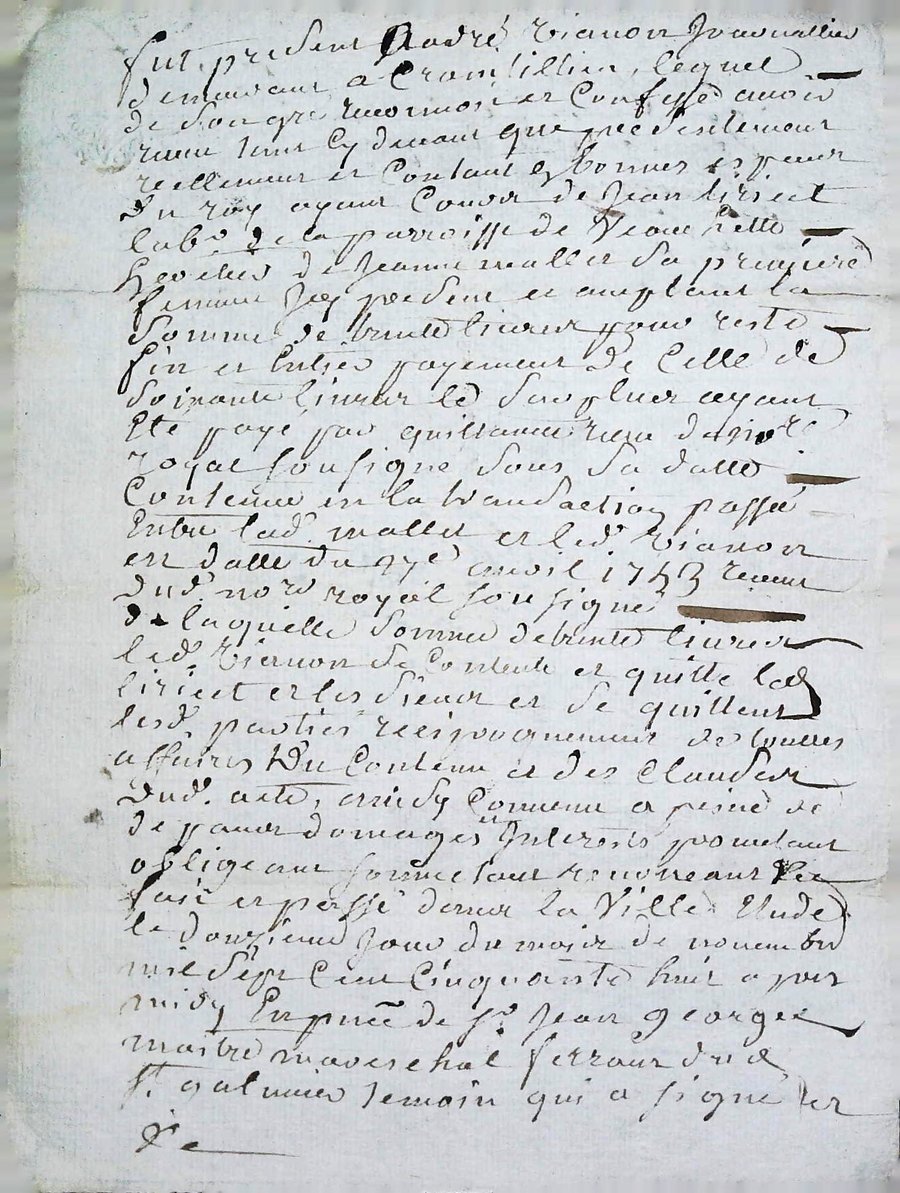 fut present André vianon Journallier
demeurant a Cromtillieu, lequel
de son gré reconnoit et Confesse avoir
receu tant cy devant que presentement
reellement et Contant en bonnes especes
du roy ayant Cours de Jean
labr de la parroisse de Veauchette
heritier de Jeanne mallet sa premiere
femme Icy present et acceptant la
somme de trente livres pour reste
fin et Entier payement de Celle de
soixante livres le surplus ayant
Eté payé par quittance receu du nore
royal soussigné sous sa datte
Contenue en la transaction passée
Entre lad. mallet et led. vianon
en datte du avril 1753 receue
dud. nore royal soussigné
de laquelle somme de trente livres
led. vianon se Contente et quitte led.
et les siens et se quittent
lesd. parties reciproquement de touttes
affaires du Contenu et des Clauses
dud. acte, ainsy Convenu a peine de
de tous domages Interests promettant
obligeant soumettant renonceant &c
fait et passé dans la Ville Etude
le douzieme jour du mois de novembre
mil sept Cent Cinquante huit apres
midy En pnce de sr Jean georges
maitre mareschal ferrant dud.
st galmier temoin qui a signé et
&c